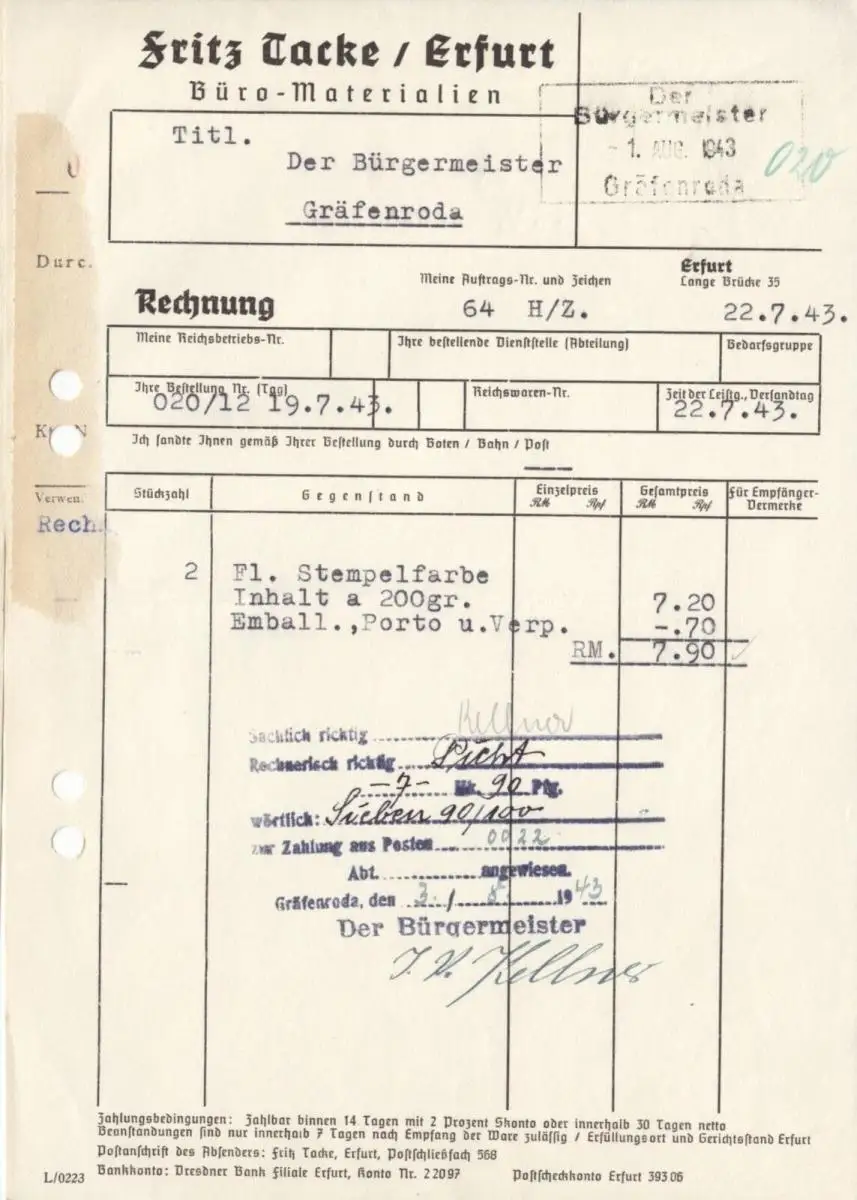 Fritz Tacke / Erfurt
Büro-Materialien
Titl.
Der Bürgermeister
Gräfenroda
Der
Bürgermeister
- 1. AUG. 1943
Gräfenroda
020
Durc.
Rechnung
Meine Auftrags-Nr. und Zeichen
64 H/Z.
Erfurt
Lange Brücke 35
22.7.43.
Meine Reichsbetriebs-Nr.
Ihre bestellende Dienststelle (Abteilung)
Bedarfsgruppe
Ihre Bestellung Nr. (Tag)
020/12 19.7.43.
Reichswaren-Nr.
Zeit der Leistg., Versandtag
22.7.43.
Ich sandte Ihnen gemäß Ihrer Bestellung durch Boten / Bahn / Post
Verwen.
Rech.
Stückzahl Gegenstand Einzelpreis Gesamtpreis Für Empfänger-
RM Rpf RM Rpf Vermerke
2 Fl. Stempelfarbe
Inhalt a 200gr. 7.20
Emball.,Porto u.Verp. -.70
RM. 7.90
Sachlich richtig Kellner
Rechnerisch richtig Licht
-7- Mk. 90 Pfg.
wörtlich: Sieben 90/100
zur Zahlung aus Posten 0022
Abt. angewiesen.
Gräfenroda, den 3. / 8. 1943
Der Bürgermeister
I. V. Kellner
Zahlungsbedingungen: Zahlbar binnen 14 Tagen mit 2 Prozent Skonto oder innerhalb 30 Tagen netto
Beanstandungen sind nur innerhalb 7 Tagen nach Empfang der Ware zulässig / Erfüllungsort und Gerichtsstand Erfurt
Postanschrift des Absenders: Fritz Tacke, Erfurt, Postschließfach 568
L/0223 Bankkonto: Dresdner Bank Filiale Erfurt, Konto Nr. 22097 Postscheckkonto Erfurt 39306